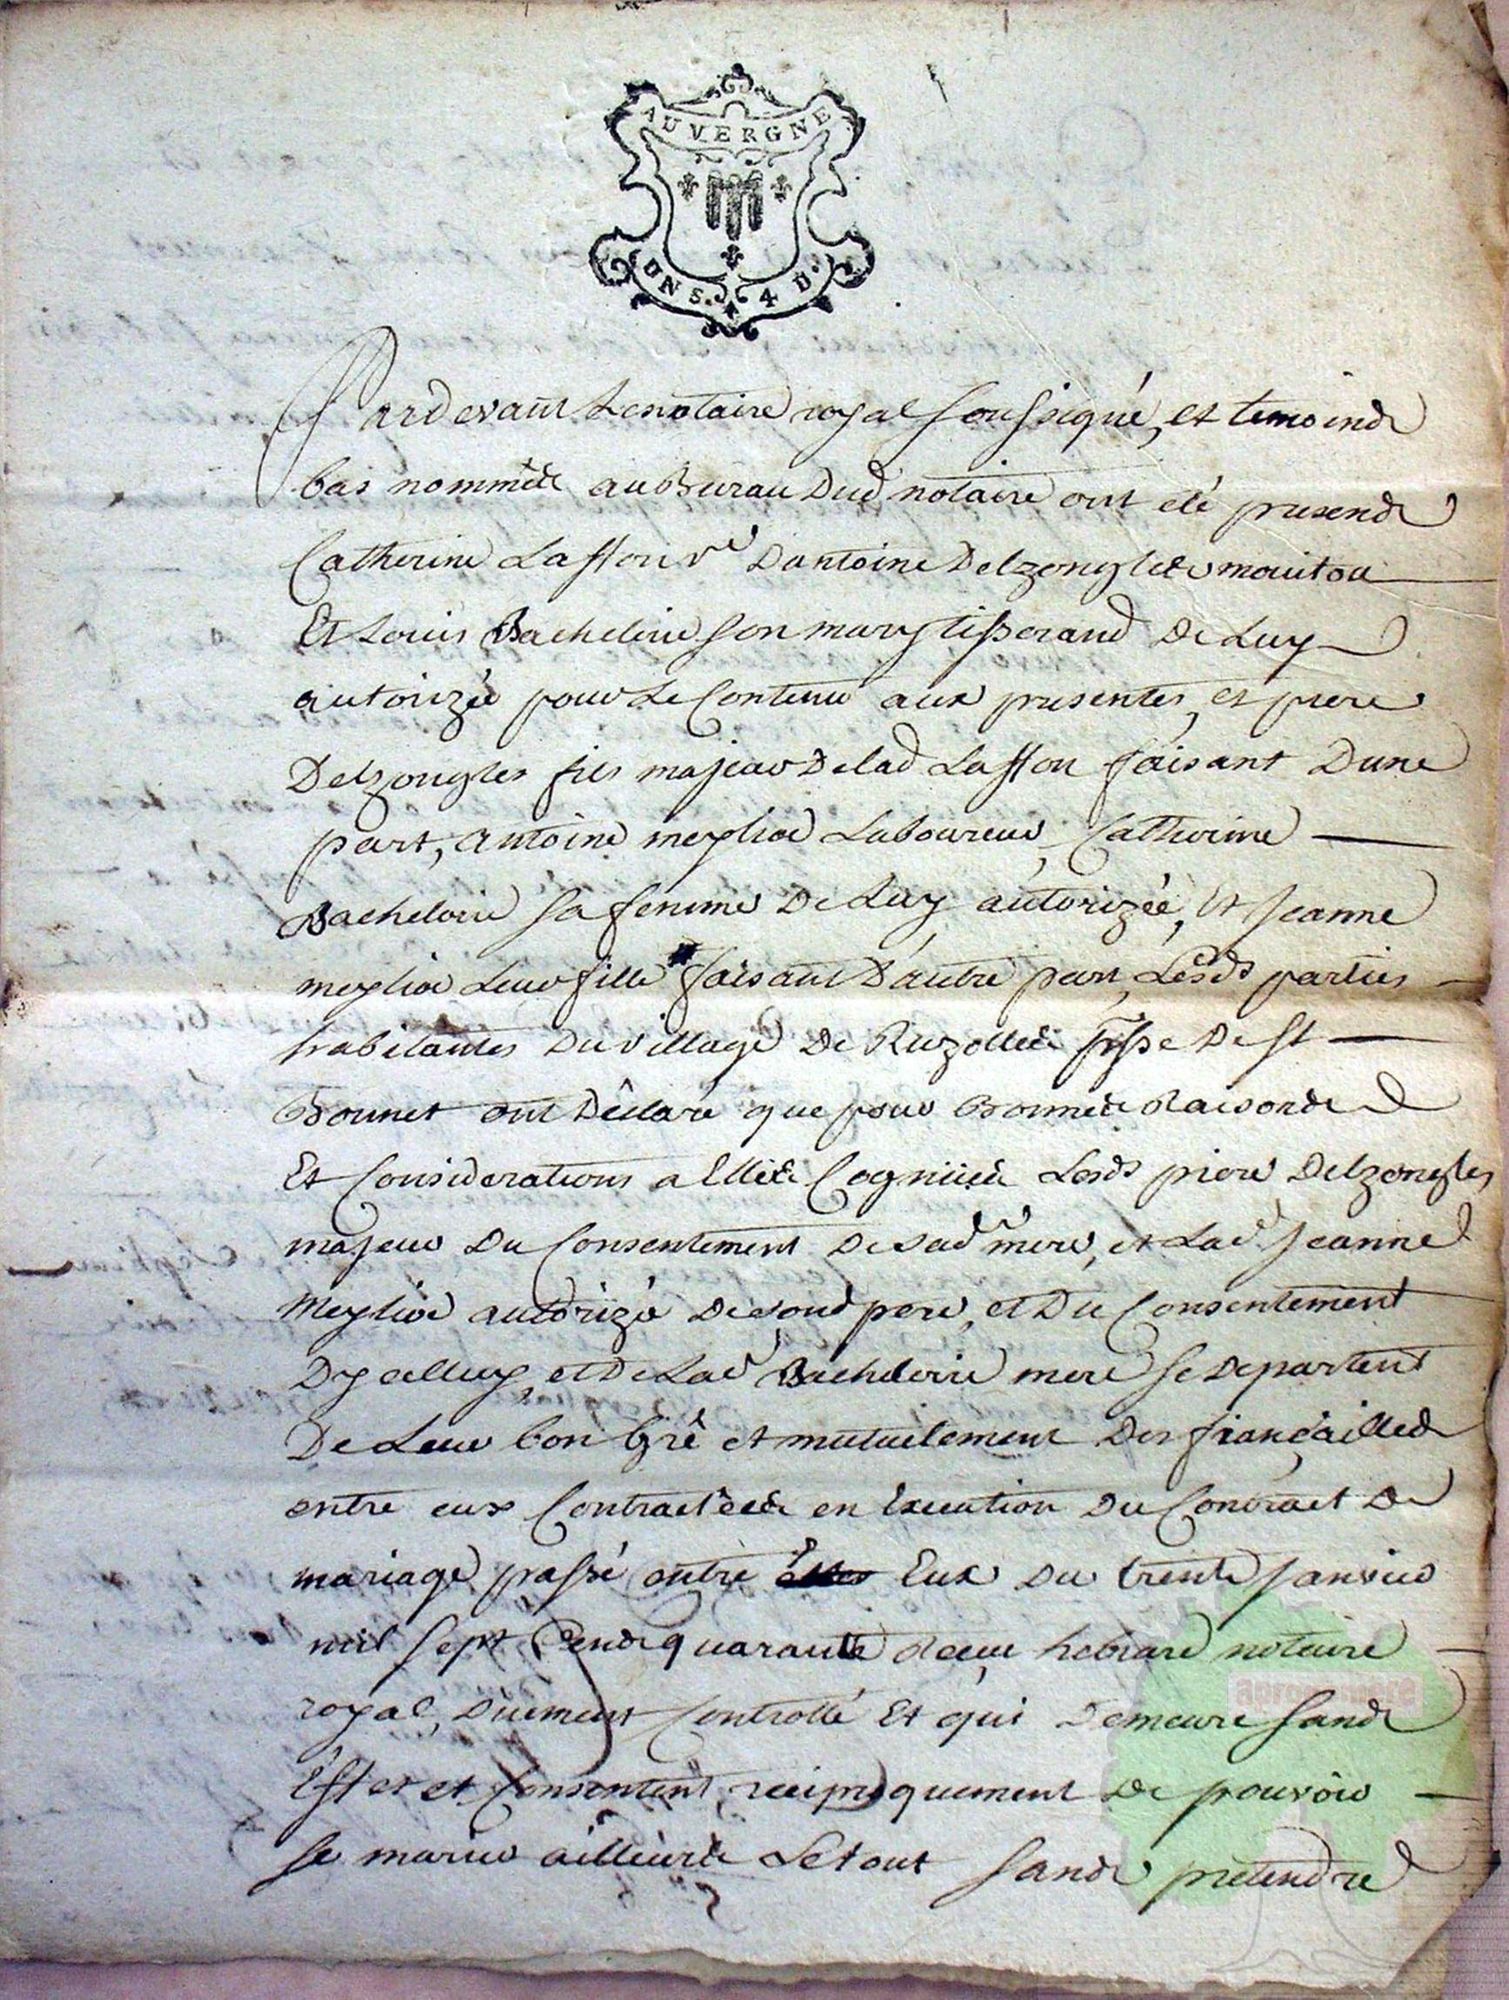 AUVERGNE
ONS. 4 D.
Pardevant Le notaire royal soussigné, et temoins
bas nommés au Bureau Dud notaire ont été presens
Catherine Laffon ve Dantoine Delzongles
Et Louis Bachelerie son mary tisserand De Luy
autorizée pour Le Contenu aux presentes, et piere
Delzongles fils majeur De lad Laffon faisant Dune
part, antoine meplioe Laboureur, Catherine
Bachelerie sa femme De Luy autorizée, Et Jeanne
meplioe Leur fille faisant Dautre part, Lesds parties
habitantes Du village De Ruzolles psse De St
Bonnet ont Déclaré que pour Bonnes Raisons
Et Considerations a Elles Cognües Lesds piere Delzongles
majeur Du Consentement De sad mere, et Lad Jeanne
Meplioe autorizée De sond pere, et Du Consentement
Dycelluy, et De Lad Bachelerie mere se Departent
De Leur bon Gré et mutuelement Des fiançailles
entre eux Contractées en Execution Du Contract De
mariage passé entre Eux Du trente Janvier
mil sept Cens quarante Receu hebrard notaire
royal, Duement Controllé Et qui Demeure sans
Effet et Consentent reciproquement De pouvoir
se marier ailleurs Le tout sans pretendre
aprogemere